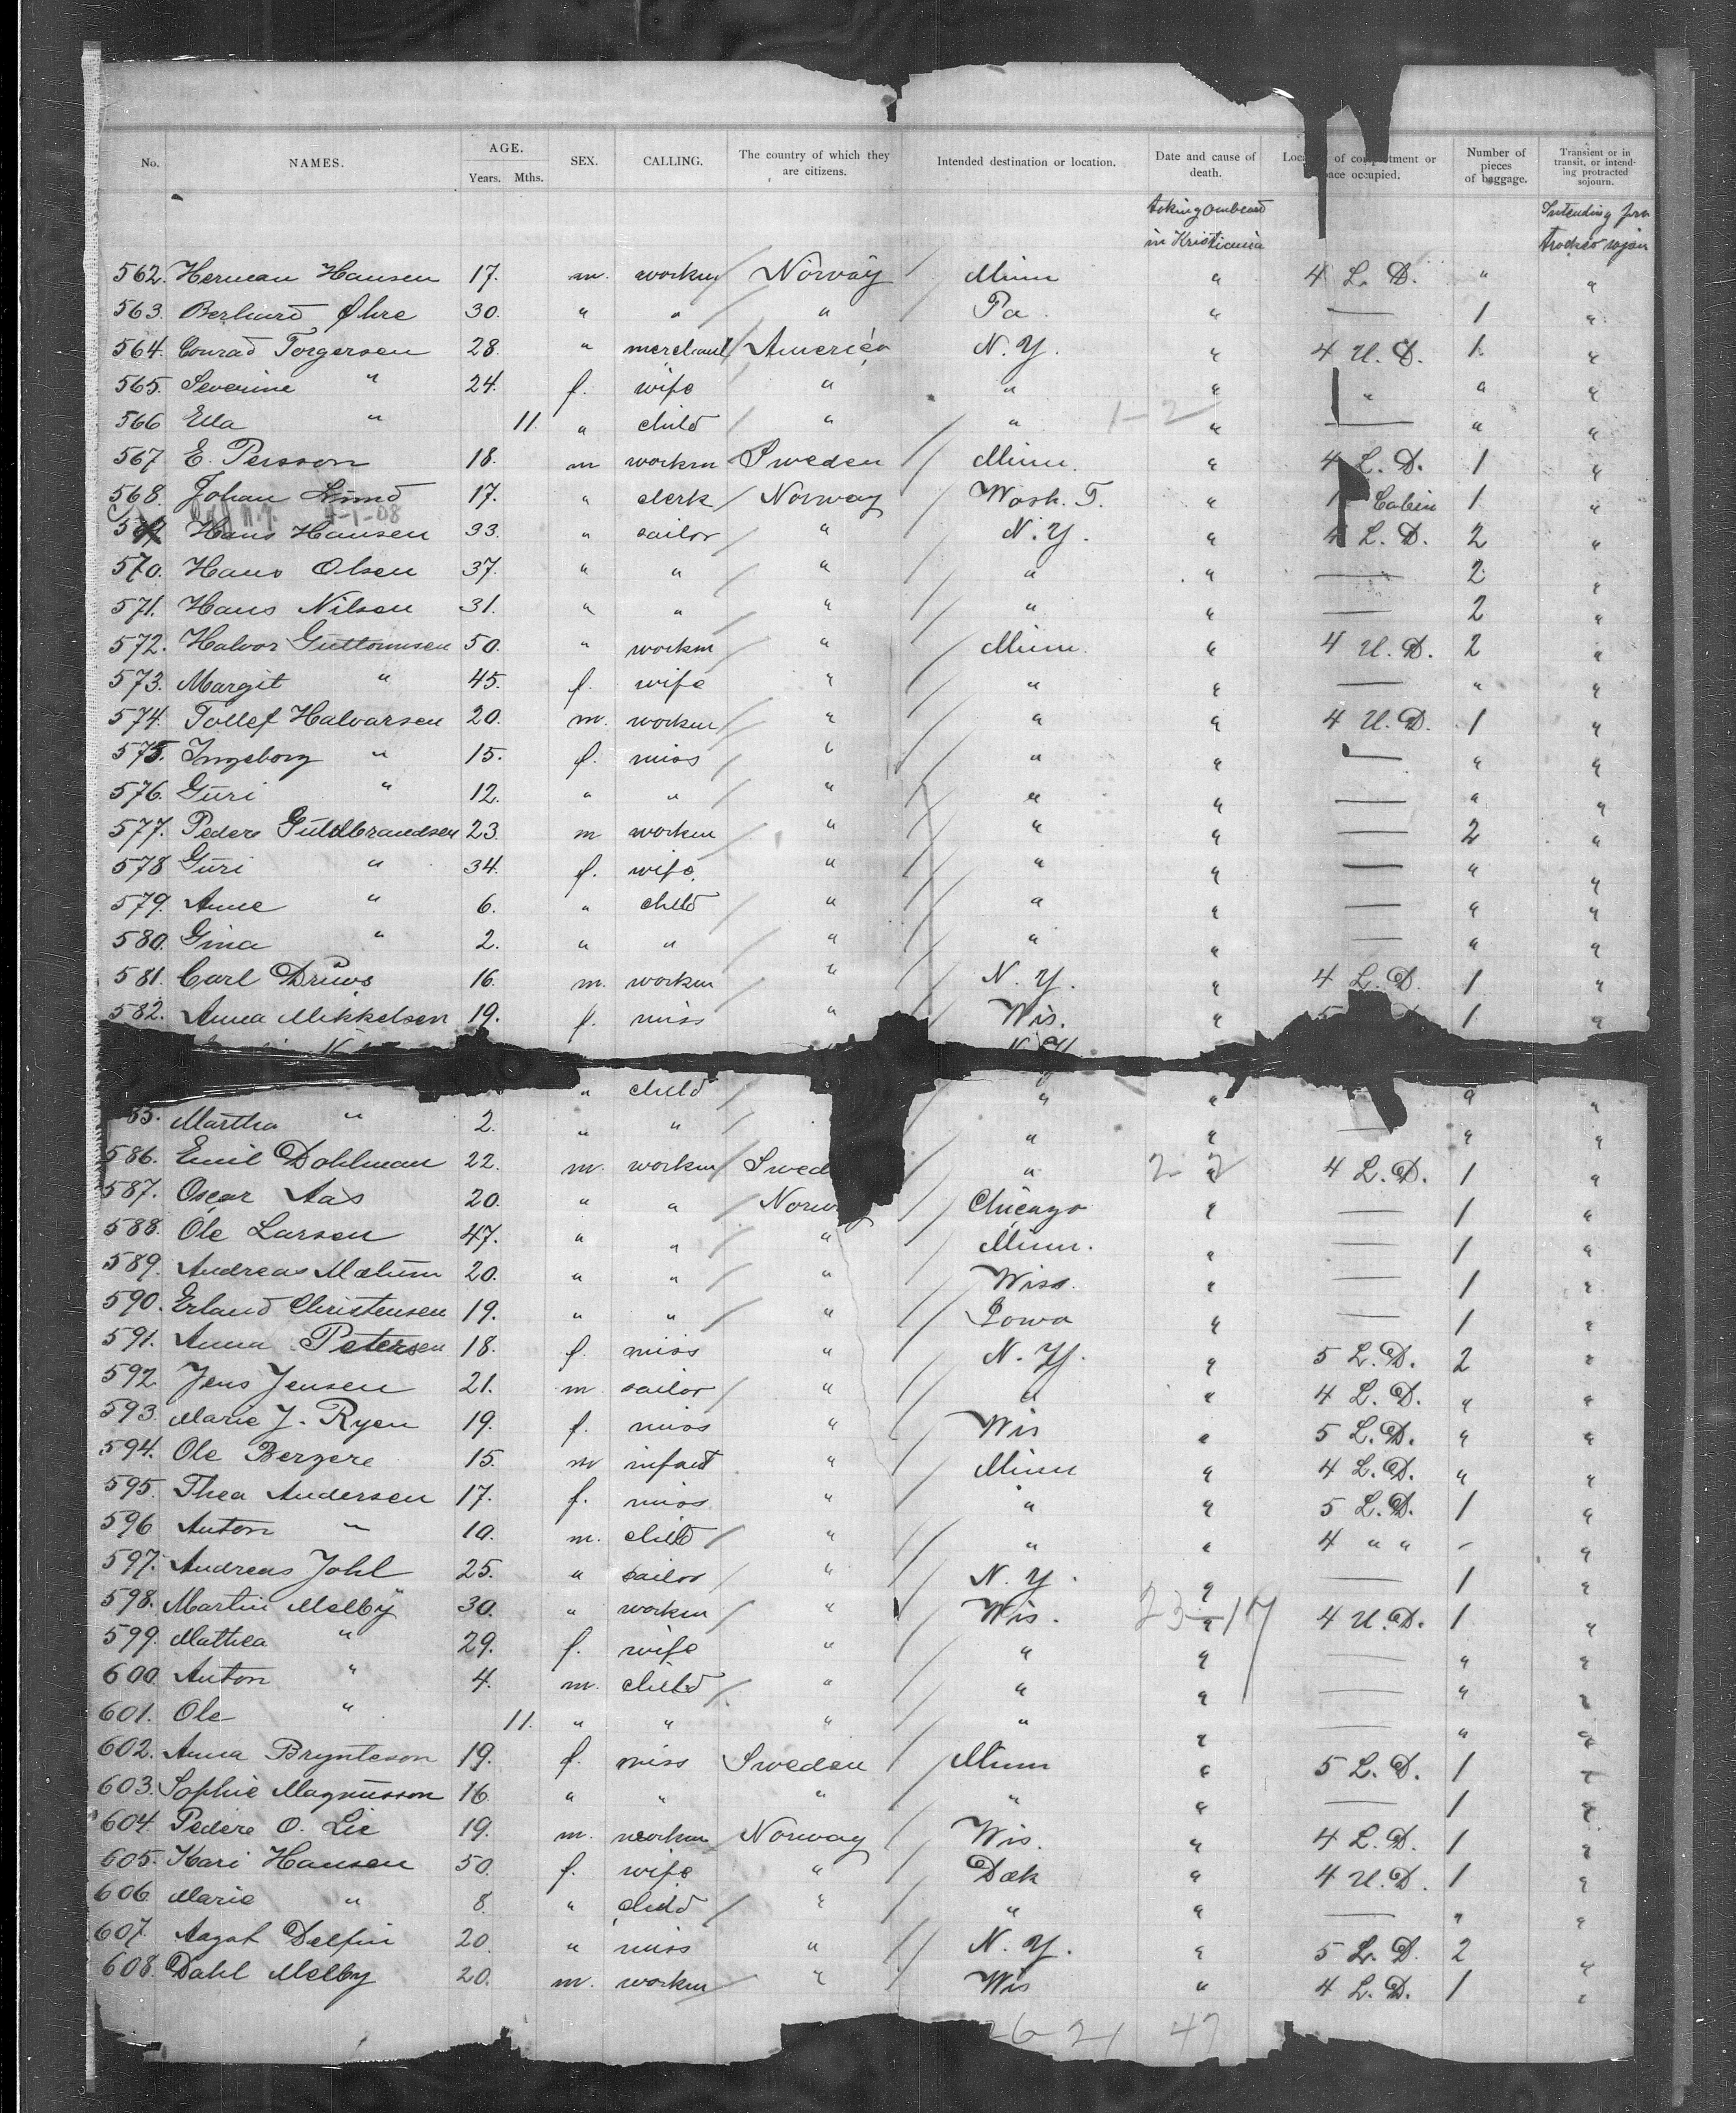 No. NAMES. AGE. Years. Mths. SEX. CALLING. The country of which they are citizens. Intended destination or location. Date and cause of death. of or occupied. Number of pieces of baggage. Transient or in transit, or intending protracted sojourn.
in Kristiania Intending
562. Herman Hansen 17. m. workm Norway Minn " 4 L. D. " "
563. Øhre 30. " " " Pa. " — 1 "
564. Conrad Torgersen 28. " merchant America N. Y. " 4 U. D. 1 "
565. Severine " 24. f. wife " " " " " "
566 Ella " 11. " child " " 1-2 " — " "
567 E. Persson 18. m workm Sweden Minn. " 4 L. D. 1 "
568. Johan Lund 17. " clerk Norway Wash. T. " 1 Cabin 1 "
4-1-08
Hans Hansen 33. " sailor " N. Y. " 4 L. D. 2 "
570. Hans Olsen 37. " " " " " — 2 "
571. Hans Nilsen 31. " " " " " — 2 "
572. Halvor Guttormsen 50. " workm " Minn. " 4 U. D. 2 "
573. Margit " 45. f. wife " " " — " "
574. Tollef Halvarsen 20. m. workm " " " 4 U. D. 1 "
575. Ingeborg " 15. f. miss " " " — " "
576. Guri " 12. " " " " " — " "
577. Peder Guldbrandsen 23. m workm " " " — 2 "
578 Guri " 34. f. wife. " " " — " "
579. Anne " 6. " child " " " — " "
580. Gina " 2. " " " " " — " "
581. Carl Driws 16. m. workm " N. Y. " 4 L. D. 1 "
582. Anna Mikkelsen 19. f. miss " Wis. " 5 1 "
" child " " " "
85. Martha " 2. " " " " — " "
586. Emil Dahlman 22. m. workm Swed " " 4 L. D. 1 "
587. Oscar Aas 20. " " Norw Chicago " — 1 "
588. Ole Larsen 47. " " " Minn. " — 1 "
589. Andreas Mælum 20. " " " Wiss. " — 1 "
590. Erland Christensen 19. " " " Iowa " — 1 "
591. Anna Petersen 18. f. miss " N. Y. " 5 L. D. 2 "
592. Jens Jensen 21. m. sailor " " " 4 L. D. " "
593. Marie J. Ryen 19. f. miss " Wis " 5 L. D. " "
594. Ole Bergere 15. m infant " Minn " 4 L. D. " "
595. Thea Andersen 17. f. miss " " " 5 L. D. 1 "
596 Anton " 10. m. child " " " 4 " " - "
597. Andreas Johl 25. " sailor " N. Y. " — 1 "
598. Martin Melby 30. " workm " Wis. 23-17 " 4 U. D. 1 "
599. Mathea " 29. f. wife " " " — " "
600. Anton " 4. m. child " " " — " "
601. Ole " 11. " " " " " — " "
602. Anna Brynteson 19. f. miss Sweden Minn " 5 L. D. 1 "
603. Sophie Magnusson 16. " " " " " — 1 "
604. Pedere O. Lie 19. m. workm Norway Wis. " 4 L. D. 1 "
605. Kari Hansen 50. f. wife " Dak " 4 U. D. 1 "
606. Marie " 8. " child " " " — " "
607. Delfin 20. " miss " N. Y. " 5 L. D. 2 "
608. Dahl Melby 20. m. workm " Wis " 4 L. D. 1 "
26-21 47